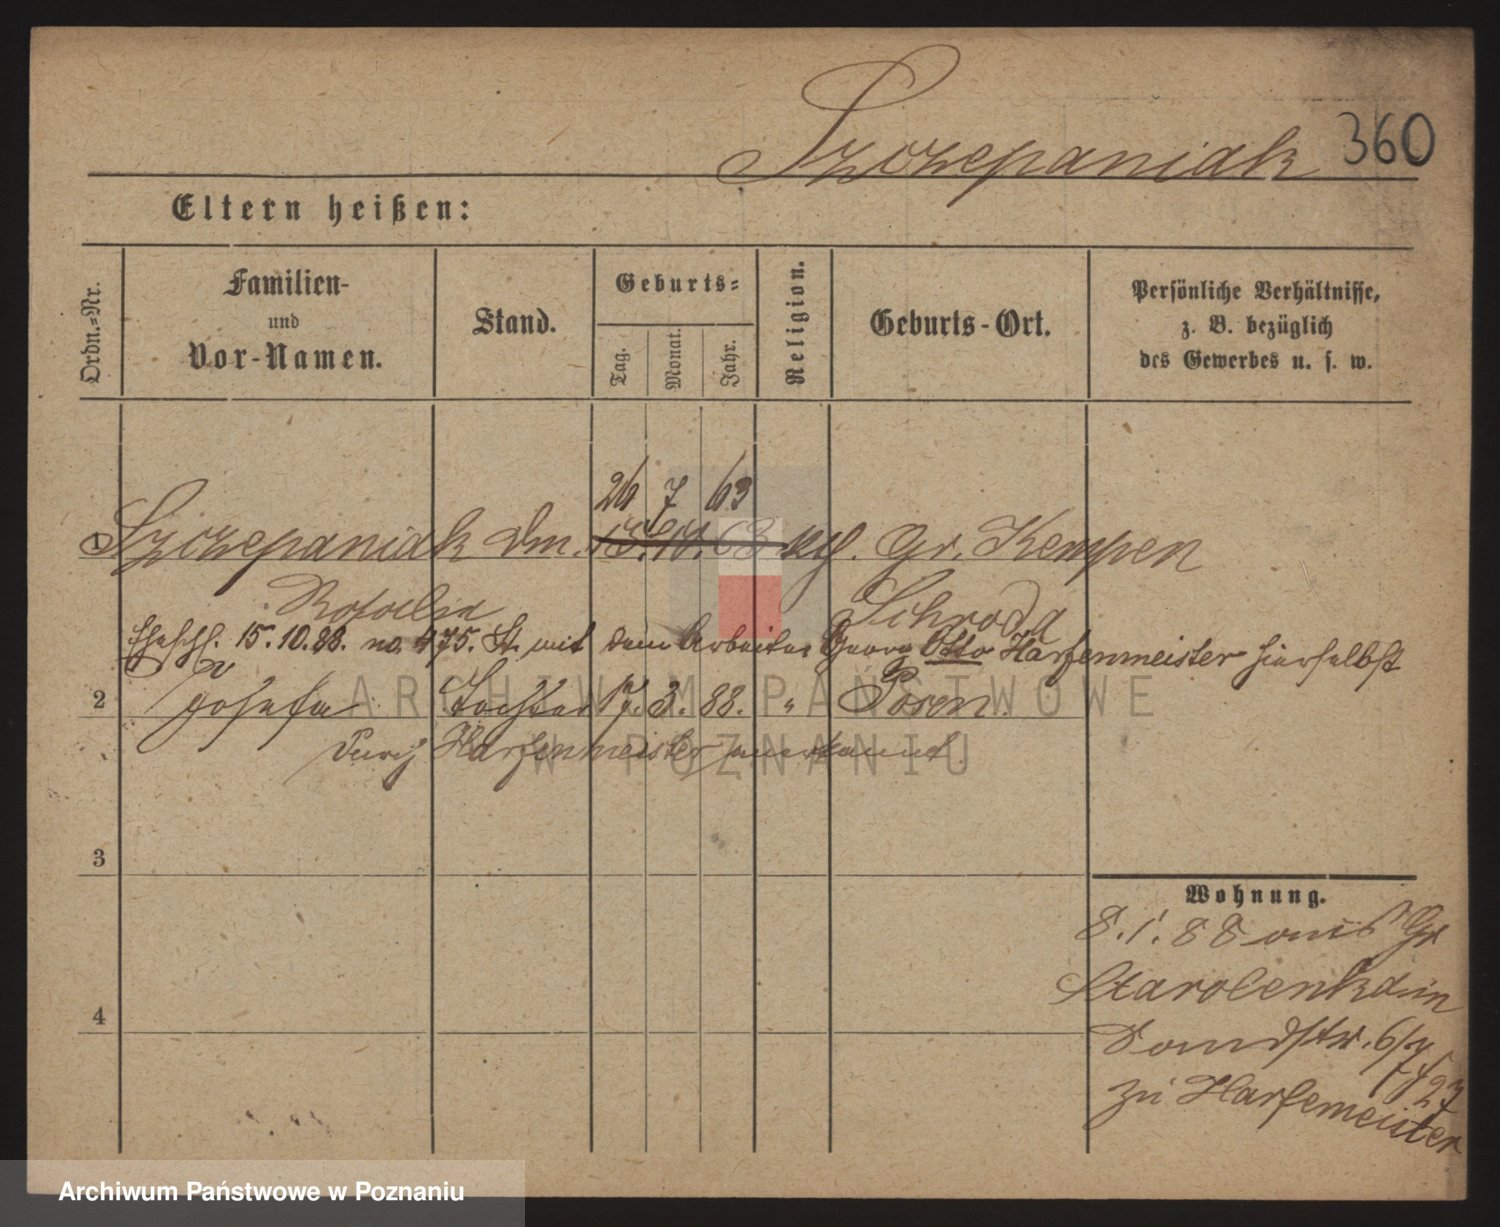 Szczepaniak 360
Eltern heißen:
Ordn.=Nr.
Familien-
und
Vor-Namen.
Stand.
Geburts=
Tag.
Monat.
Jahr.
Religion.
Geburts-Ort.
Persönliche Verhältnisse,
z. B. bezüglich
des Gewerbes u. s. w.
26 7 63
1 Szczepaniak Dm. 15. 10. 63 Gr. Kempen
Schroda
Ehschl. 15.10.88. no. 475. St. mit dem Arbeiter Georg Otto Harfenmeister hierselbst
2 Josefa Tochter 17. 3. 88. " Posen.
durch Harfenmeister anerkannt.
3
Wohnung.
8.1.88 aus Gr
Starolenka in
4
Sandstr. 6/7
zu Harfemeister
ARCHIWUM PAŃSTWOWE
W POZNANIU
Archiwum Państwowe w Poznaniu